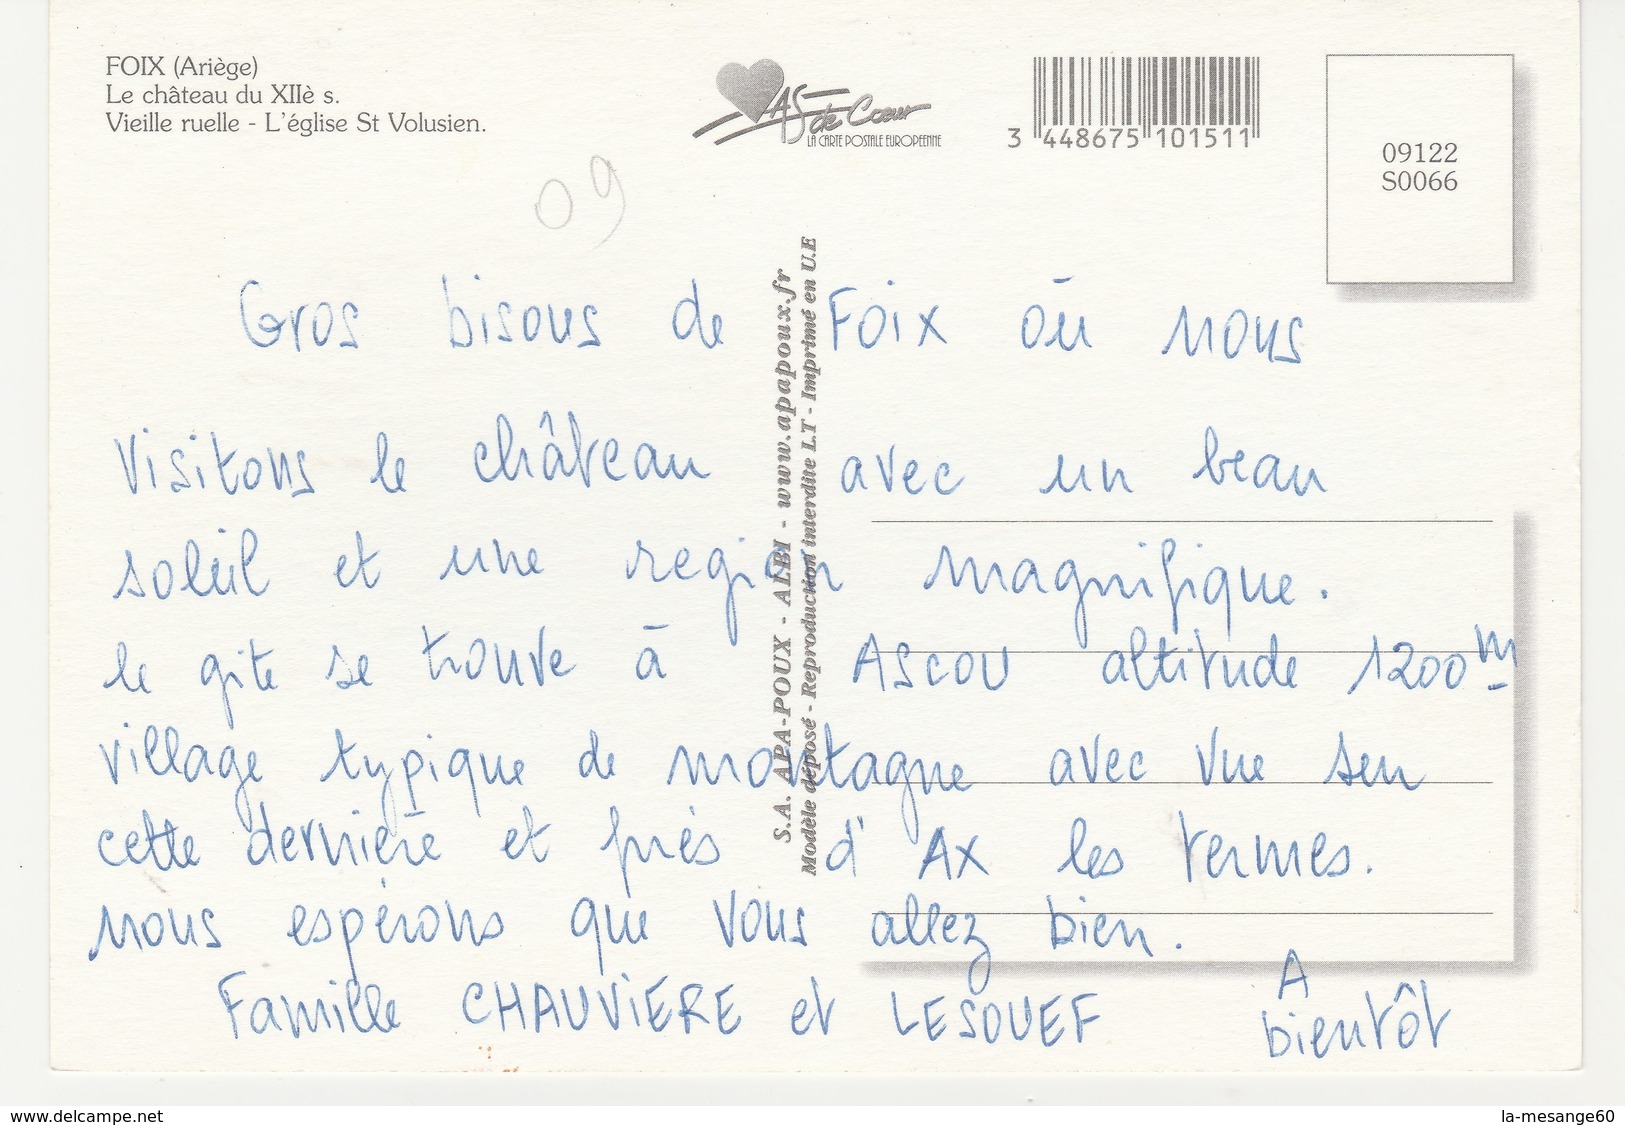 FOIX (Ariège)
Le château du XIIè s.
Vieille ruelle - L'église St Volusien.
AS de Cœur
LA CARTE POSTALE EUROPEENNE
3 448675 101511
09122
S0066
09
S.A. APA-POUX - ALBI - www.apapoux.fr
Modèle déposé - Reproduction interdite LT - Imprimé en U.E
Gros bisous de Foix où nous
visitons le château avec un beau
soleil et une region magnifique.
le gite se trouve à ASCOU altitude 1200m
village typique de montagne avec vue sur
cette dernière et près d'AX les termes.
nous espérons que vous allez bien.
Famille CHAUVIERE et LESOUEF
A
bientôt
www.delcampe.net
la-mesange60